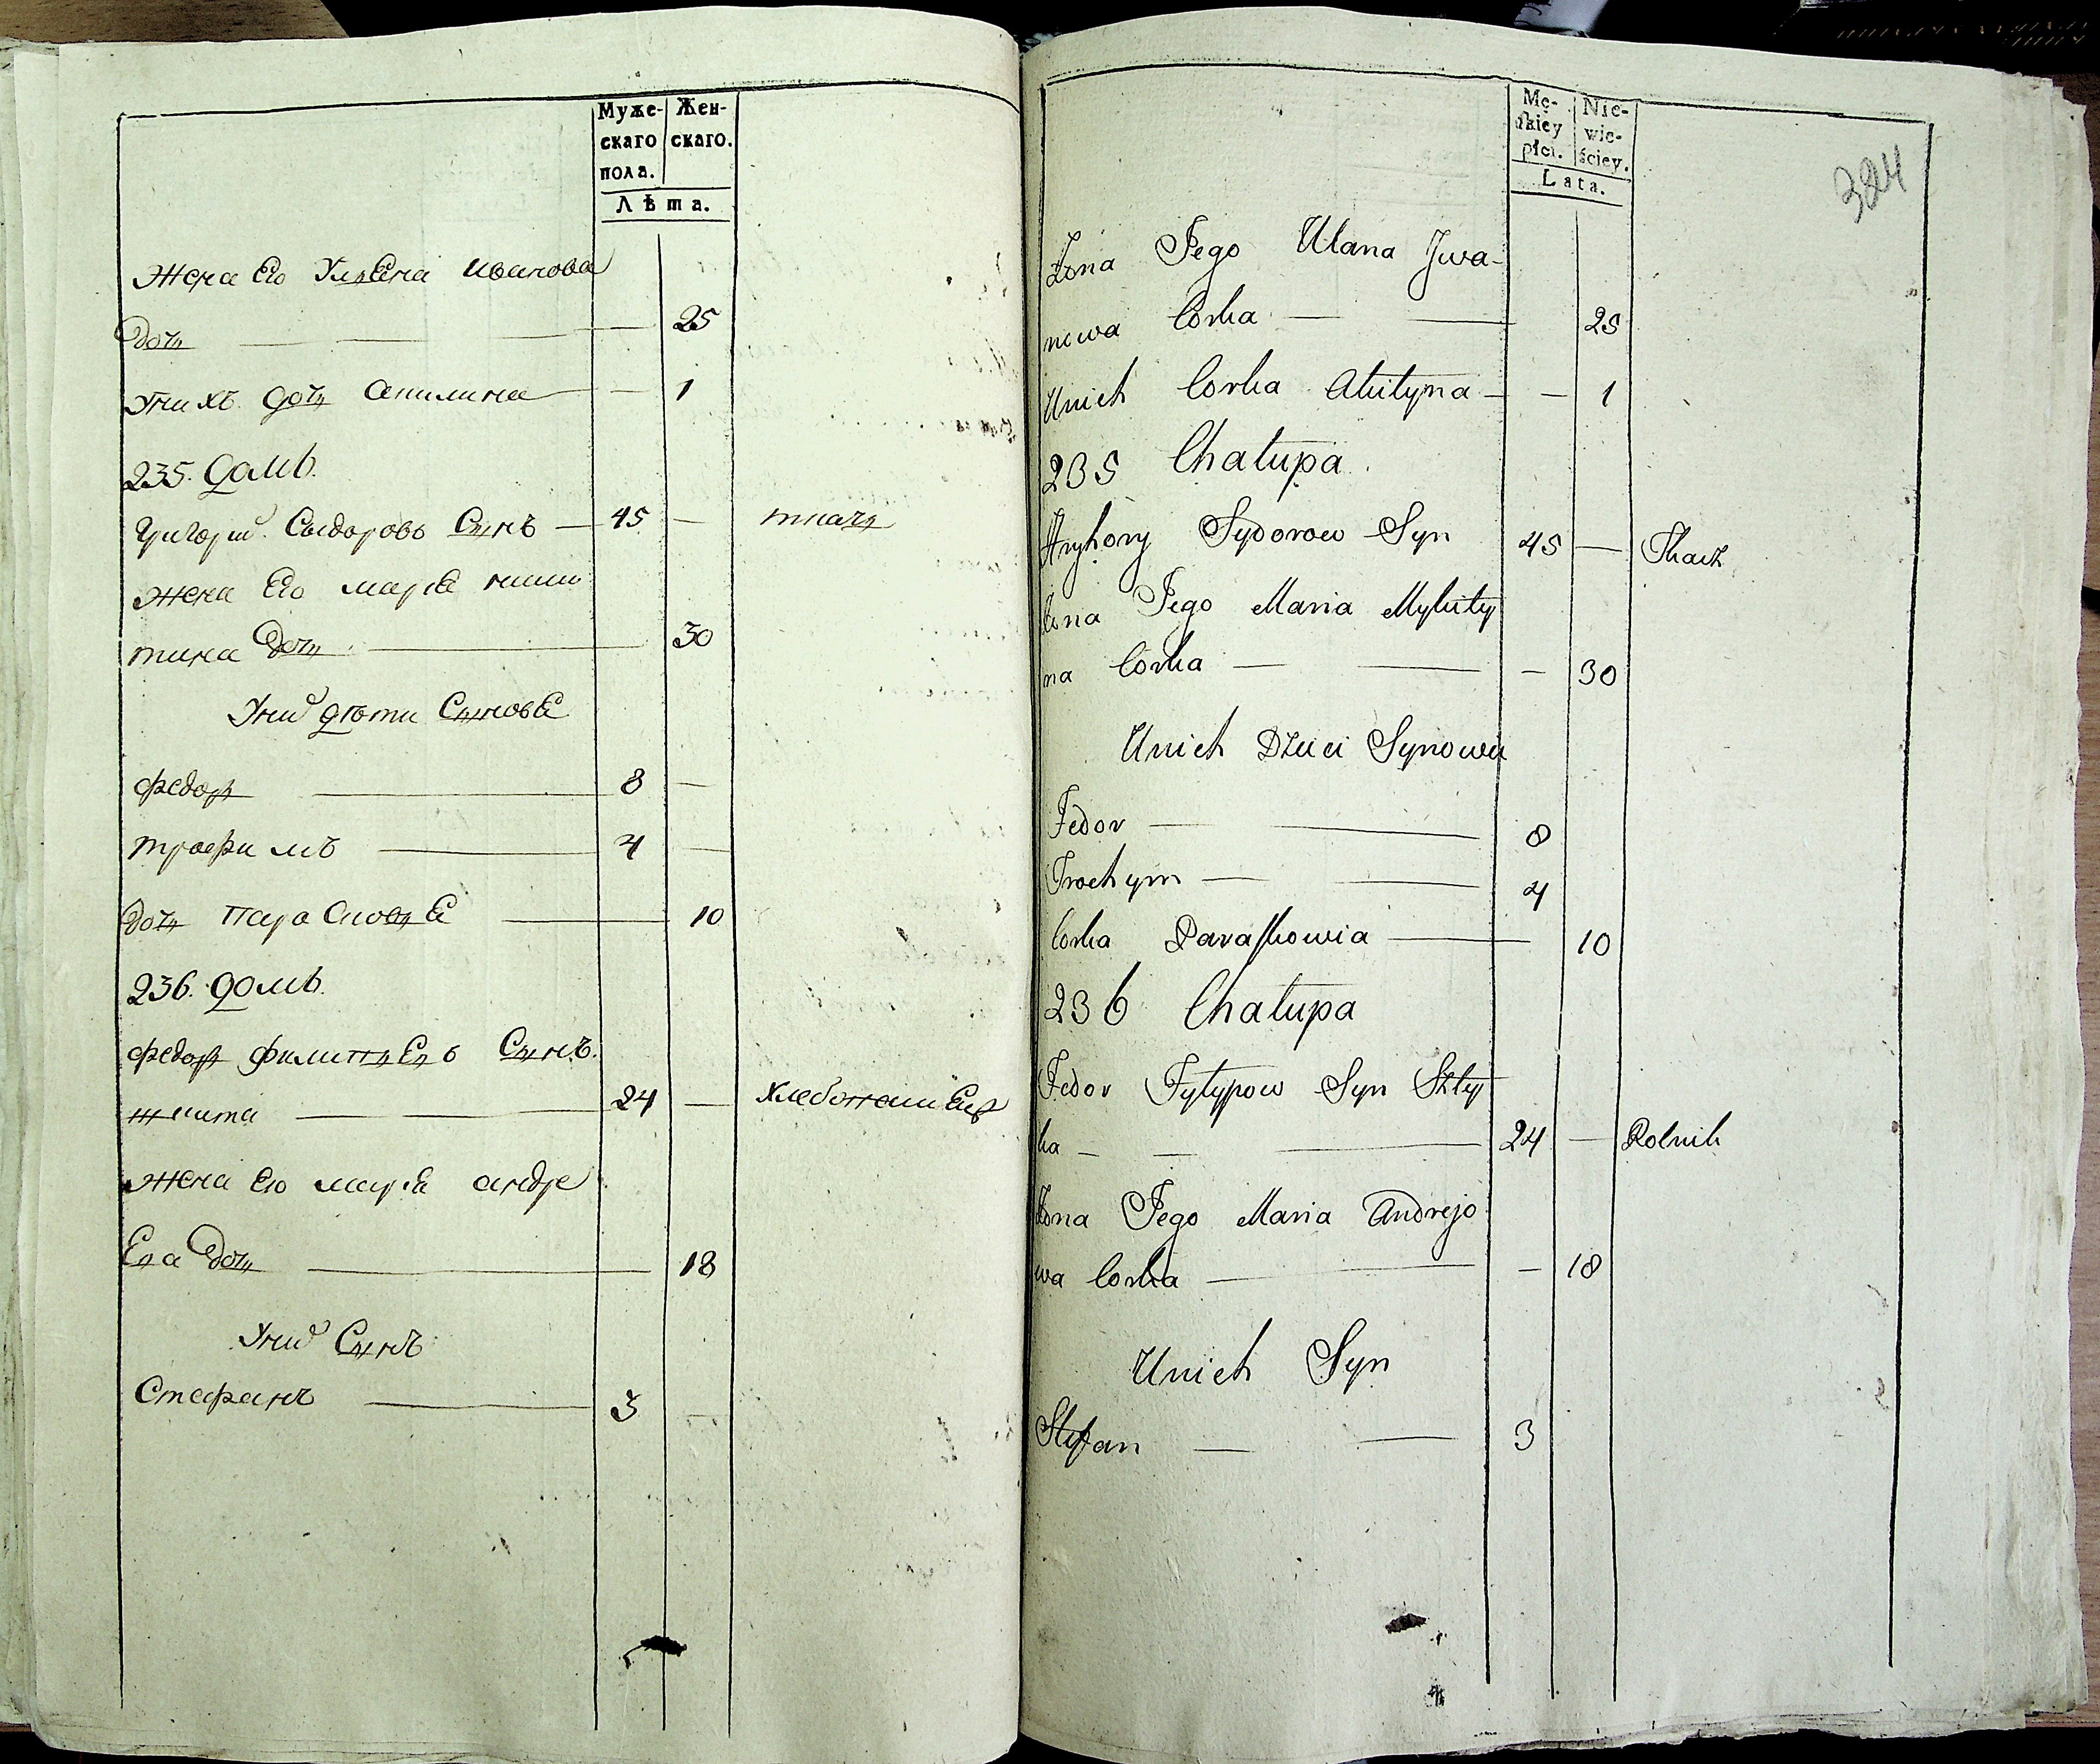 Муже-
скаго
пола.
Жен-
скаго.
Лѣта.
жена Его Ульена Иванова
дочь — — — 25
Унихъ дочь Акилина — — 1
235. домъ.
Григорий Сыдоровъ Сынъ — 45 — ткачь
жена Его марье мики
тина дочь — 30
Уний дѣти Сыновье
федоръ — 8 —
трофимъ — 4 —
дочь Парасковье — 10
236. домъ.
федоръ филипьевъ Сынъ
24 — хлебопашецъ
жена Его марье андре
ева дочь — 18
Уний Сынъ
Стефанъ — 3 —
Mę-
skiey
płci.
Nie-
wie-
ściey.
Lata.
324
Żona Jego Ulana Jwa-
nowa Corka — — 25
Unich Corka Akityna — — 1
235 Chatupa.
Hryhory Sydorow Syn 45 — Tkacz
Żona Jego Maria Mykity
na Corka — — — 30
Unich Dzieci Synowie
Fedor — — 8
Trochym — — 4
Corka Paraskowia — 10
236 Chatupa
Fedor Fytypow Syn Szty
ka — — — 24 — Rolnik
Żona Jego Maria Andrejo
wa Corka — — 18
Unich Syn
Stefan — — 3